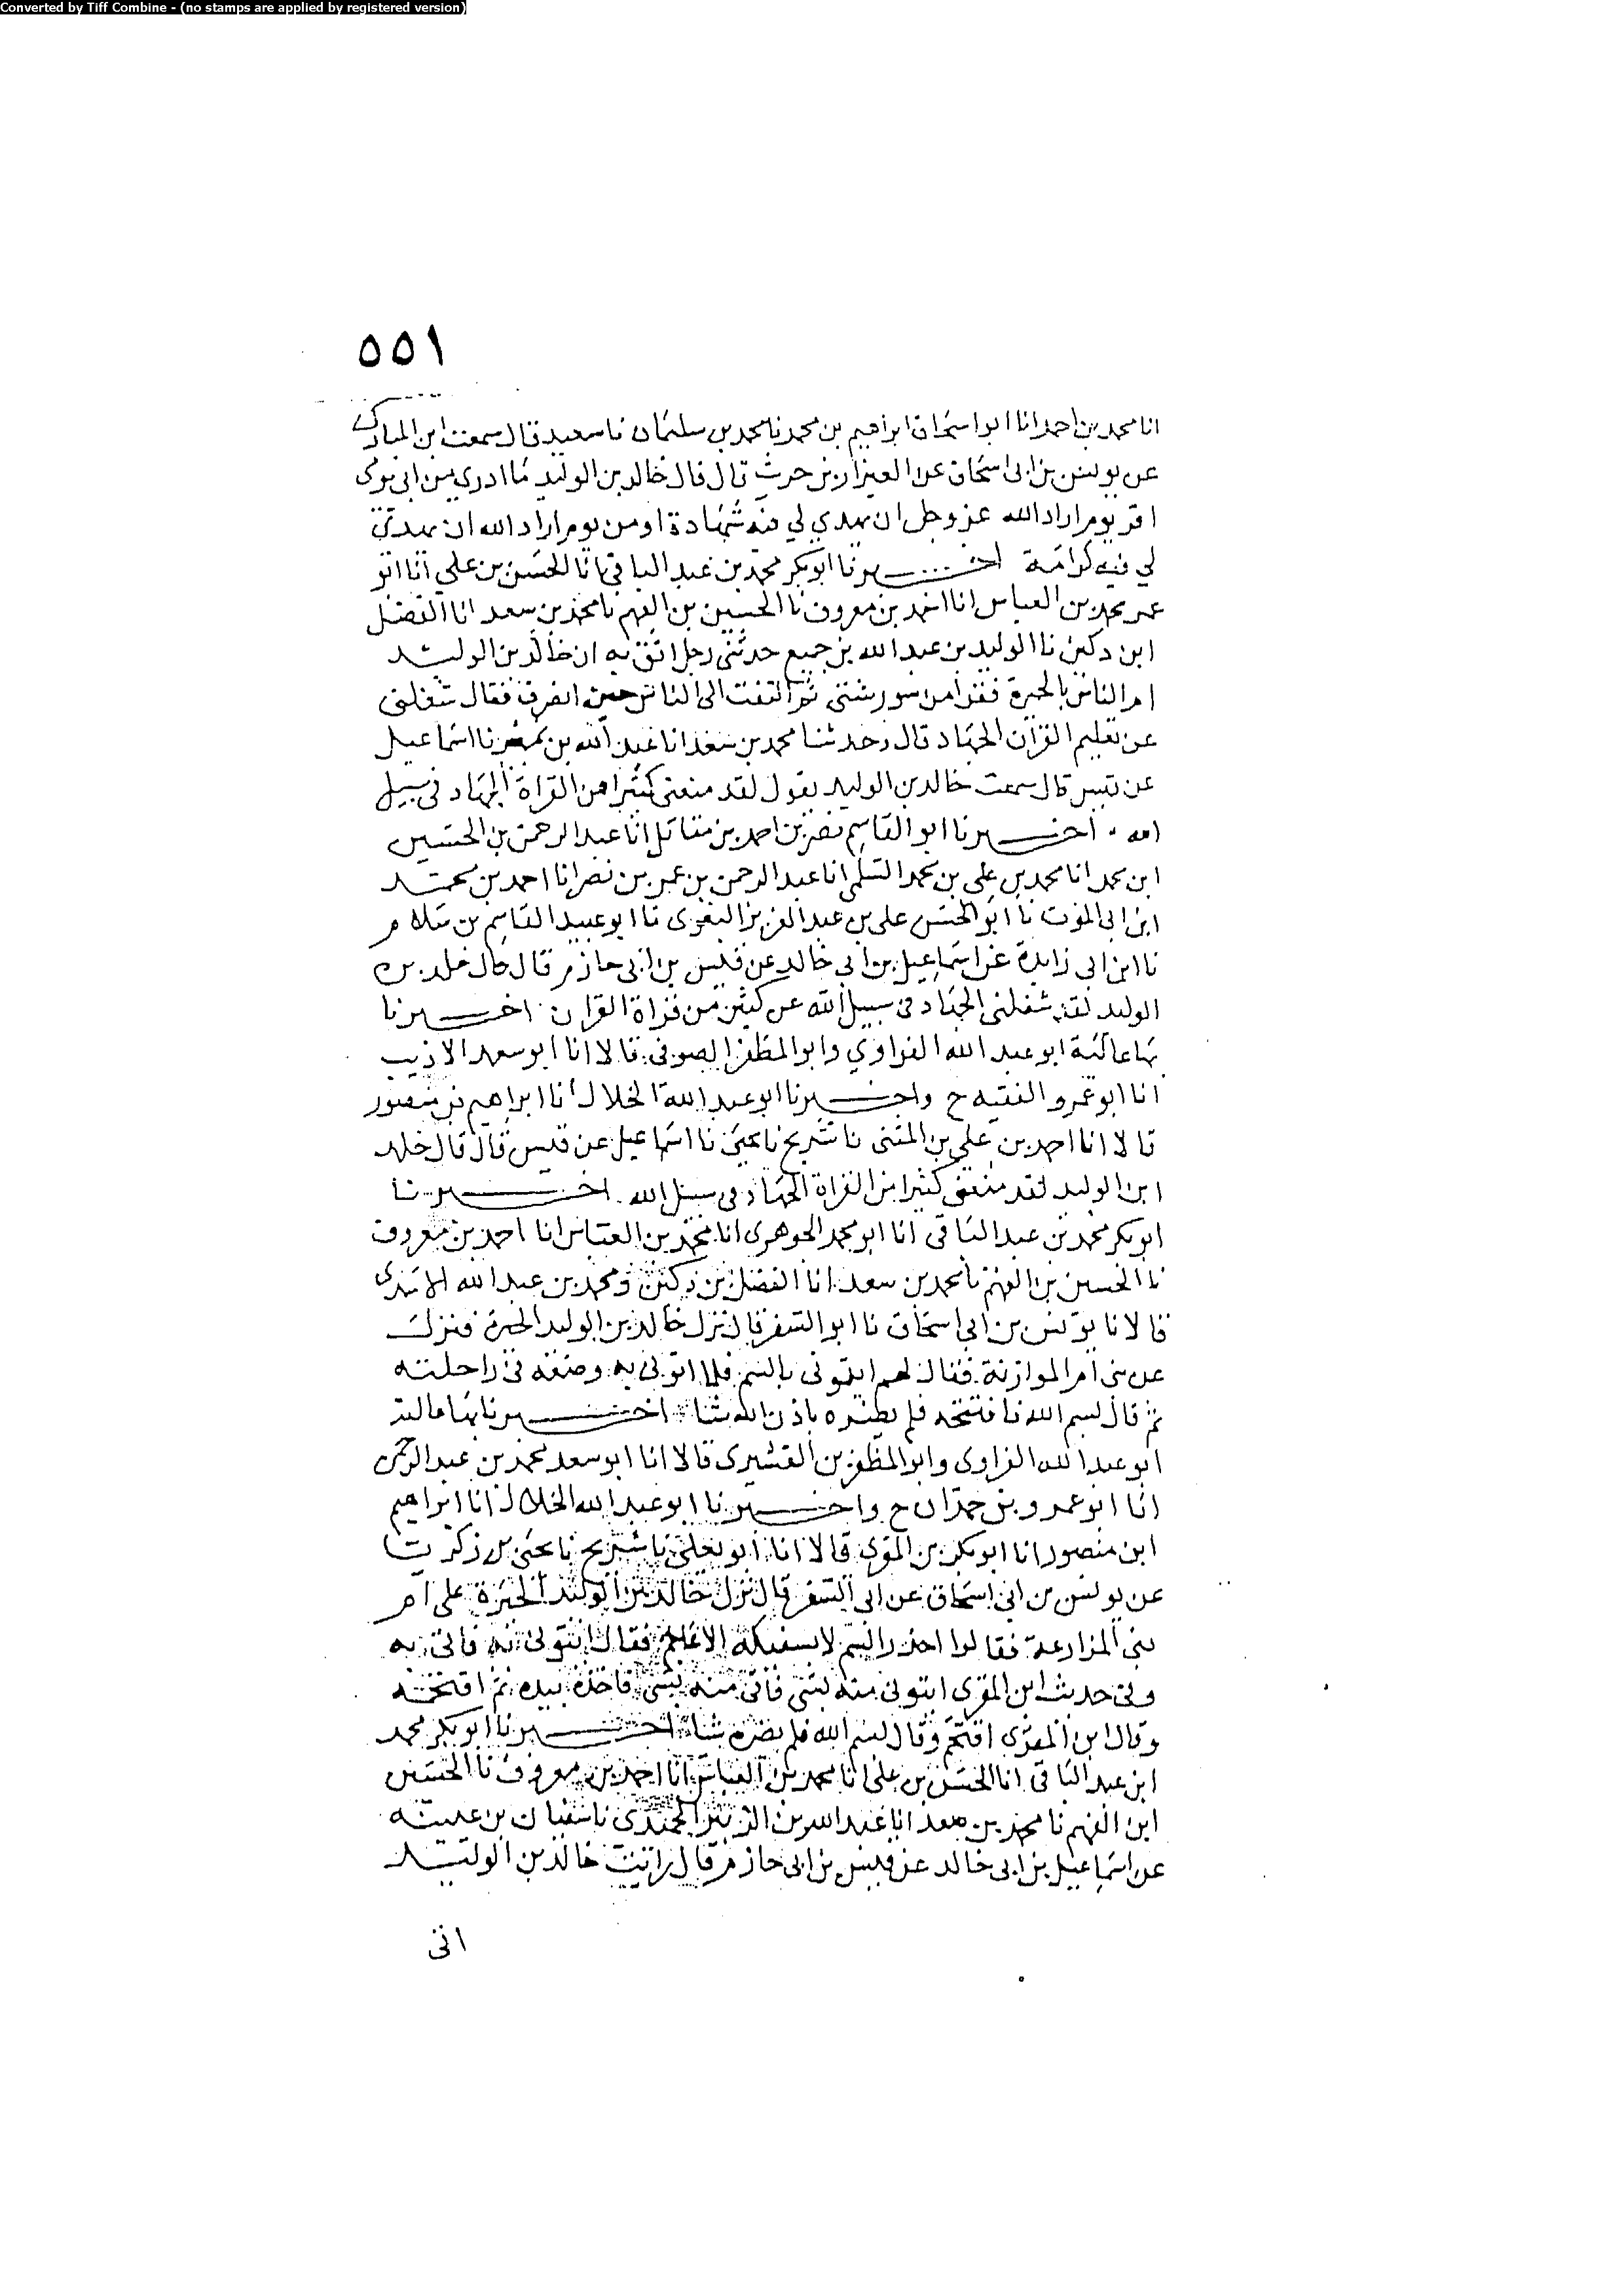 Converted by Tiff Combine - (no stamps are applied by registered version)
٥٥١
انا محمد بن احمد انا ابو اسحاق ابراهيم بن محمد نا محمد بن سليمان نا سعيد قال سمعت ابن المبارك
عن يونس بن ابي اسحاق عن العيزار بن حريث قال قال خالد بن الوليد ما ادري من اي يومي
افر يوم اراد الله عز وجل ان يهدي لي فيه شهادة او من يوم اراد الله ان يهدي
لي فيه كرامة اخبرنا ابو بكر محمد بن عبد الباقي انا الحسن بن علي انا ابو
عمر محمد بن العباس انا احمد بن معروف نا الحسين بن الفهم نا محمد بن سعد انا الفضل
ابن دكين نا الوليد بن عبد الله بن جميع حدثني رجل اثق به ان خالد بن الوليد
ام الناس بالحيرة فقرا من سور شتى ثم التفت الى الناس حين انصرف فقال شغلني
عن تعليم القرآن الجهاد قال وحدثنا محمد بن سعد انا عبد الله بن نمير نا اسماعيل
عن قيس قال سمعت خالد بن الوليد يقول لقد منعني كثيرا من القراة الجهاد في سبيل
الله . اخبرنا ابو القاسم نصر بن احمد بن مقاتل انا عبد الرحمن بن الحسين
ابن محمد انا محمد بن علي بن محمد السلمي انا عبد الرحمن بن عمر بن نصر انا احمد بن محمد
ابن ابي الموت نا ابو الحسن علي بن عبد العزيز البغوي نا ابو عبيد القاسم بن سلام
نا ابن ابي زايدة عن اسماعيل بن ابي خالد عن قيس بن ابي حازم قال قال خلد بن
الوليد لقد شغلني الجهاد في سبيل الله عن كثير من قراة القران اخبرنا
بها عالية ابو عبد الله الفراوي وابو المظفر الصوفي قالا انا ابو سعد الاديب
انا ابو عمرو الفقيه ح واخبرنا ابو عبد الله الخلال انا ابراهيم بن منصور
قالا انا احمد بن علي بن المثنى نا شريح نا يحيى نا اسماعيل عن قيس قال قال خلد
ابن الوليد لقد منعني كثيرا من القراة الجهاد في سبيل الله . اخبرنا
ابو بكر محمد بن عبد الباقي انا ابو محمد الجوهري انا محمد بن العباس انا احمد بن معروف
نا الحسين بن الفهم نا محمد بن سعد انا الفضل بن دكين ومحمد بن عبد الله الاسدي
قالا نا يونس بن ابي اسحاق نا ابو السفر قال نزل خالد بن الوليد الحيرة فنزل
على بني ام الموازنة فقال لهم ايتوني بالسم فلما اتوني به وضعه في راحلته
ثم قال بسم الله فاقتحمه فلم يضره باذن الله شيا اخبرنا بها عاليه
ابو عبد الله الفراوي وابو المظفر بن القشيري قالا انا ابو سعد محمد بن عبد الرحمن
انا ابو عمرو بن حمدان ح واخبرنا ابو عبد الله الخلال انا ابراهيم
ابن منصور انا ابو بكر بن المقري قالا انا ابو يعلى نا شريح نا يحيى بن زكريا
عن يونس بن ابي اسحاق عن ابي السفر قال نزل خالد بن الوليد الحيرة على ام
بني المزارعة فقالوا احذر السم لا يسقيكه الاعاجم فقال ايتوني به فاتي به
وفي حديث ابن المقري ايتوني منه بشي فاتي منه بشي فاخذه بيده ثم اقتحمه
وقال ابن المقري اقتحم وقال بسم الله فلم يضره شيا اخبرنا ابو بكر محمد
ابن عبد الباقي انا الحسن بن علي انا محمد بن العباس انا احمد بن معروف نا الحسين
ابن الفهم نا محمد بن سعد انا عبد الله بن الزبير الحميدي نا سفيان بن عيينه
عن اسماعيل بن ابي خالد عن قيس بن ابي حازم قال رايت خالد بن الوليد
اتى